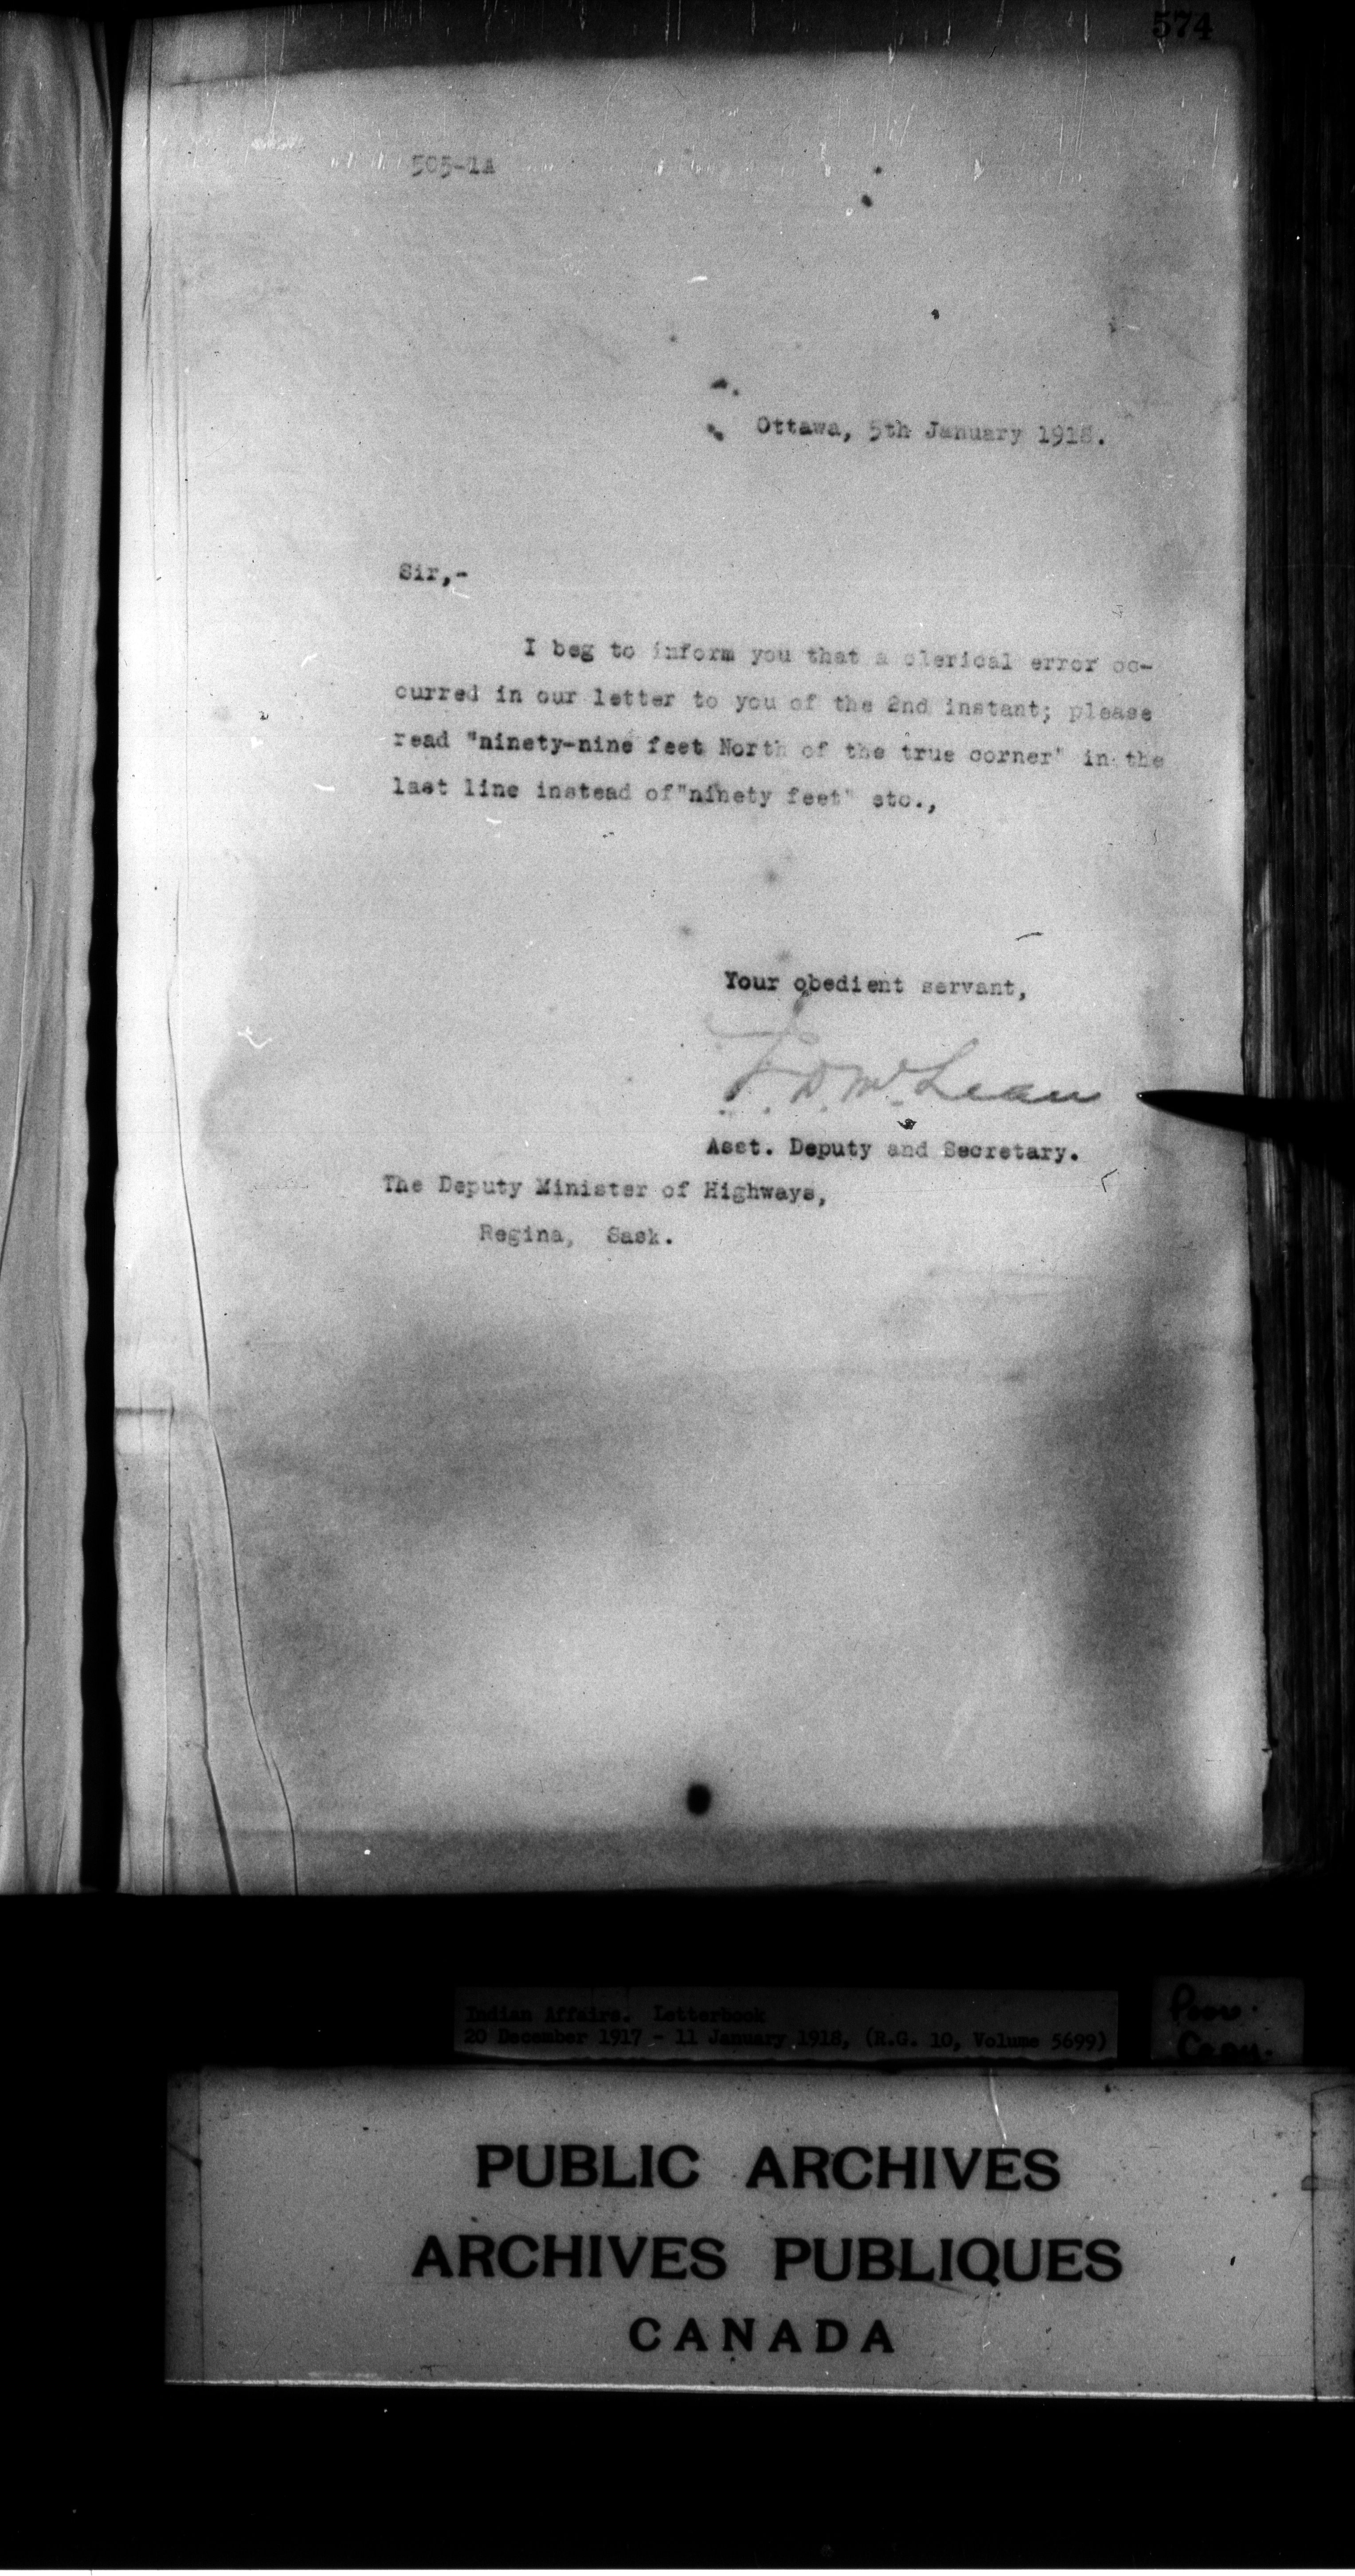 574
505-1A
Ottawa, 5th January 1918.
Sir,-
I beg to inform you that a clerical error oc-
curred in our letter to you of the 2nd instant; please
read "ninety-nine feet North of the true corner" in the
last line instead of "ninety feet" etc.,
Your obedient servant,
J. D. McLean
Asst. Deputy and Secretary.
The Deputy Minister of Highways,
Regina, Sask.
Indian Affairs. Letterbook
20 December 1917 - 11 January 1918, (R.G. 10, Volume 5699)
PUBLIC ARCHIVES
ARCHIVES PUBLIQUES
CANADA